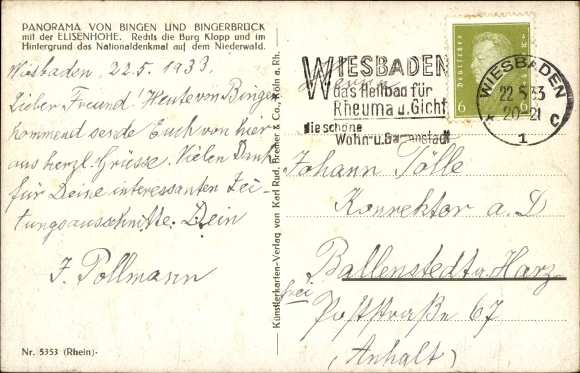 PANORAMA VON BINGEN UND BINGERBRÜCK
mit der ELISENHÖHE. Rechts die Burg Klopp und im
Hintergrund das Nationaldenkmal auf dem Niederwald.
Wiesbaden, 22.5.1933.
Lieber Freund! Heute von Bingen
kommend sende Euch von hier
aus herzl. Grüsse. Vielen Dank
für Deine interessanten Zei-
tungsausschnitte. Dein
J. Pollmann
Nr. 5353 (Rhein)-
Künstlerkarten-Verlag von Karl Rud. Bremer & Co., Köln a. Rh.
WIESBADEN
das Heilbad für
Rheuma u. Gicht
die schöne
Wohn-u. Gartenstadt
Deutsches Reich
6 6
WIESBADEN
22.5.33
20-21
* C
1
Johann Tölle
Konrektor a. D
Ballenstedt a. Harz
frei
Poststraße 67
(Anhalt)